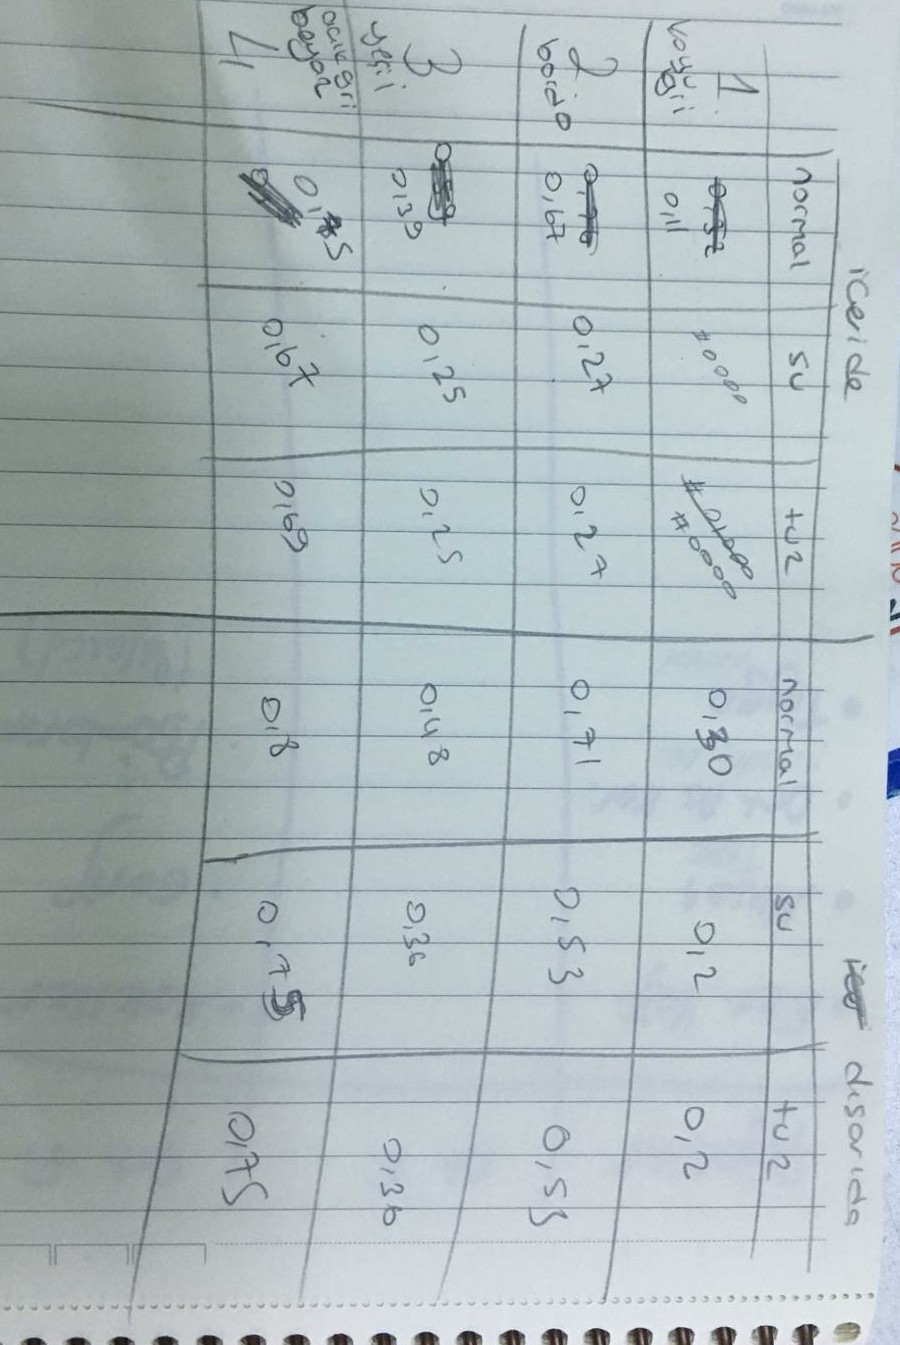 içeride dısarıda
normal su tuz normal su tuz
1 koyu gri 0,11 #0000 #0000 0,30 0,2 0,2
2 bordo 0,67 0,27 0,27 0,71 0,53 0,53
3 yeşil 0,39 0,25 0,25 0,48 0,36 0,36
4 açık gri beyaz 0,75 0,67 0,69 0,8 0,75 0,75